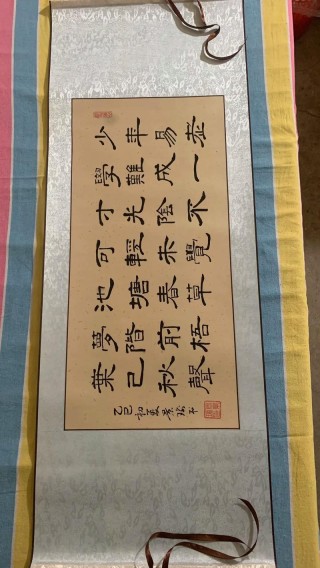 少年易老
學難成一
寸光陰不
可輕未覺
池塘春草
夢階前梧
葉已秋聲
乙巳初夏